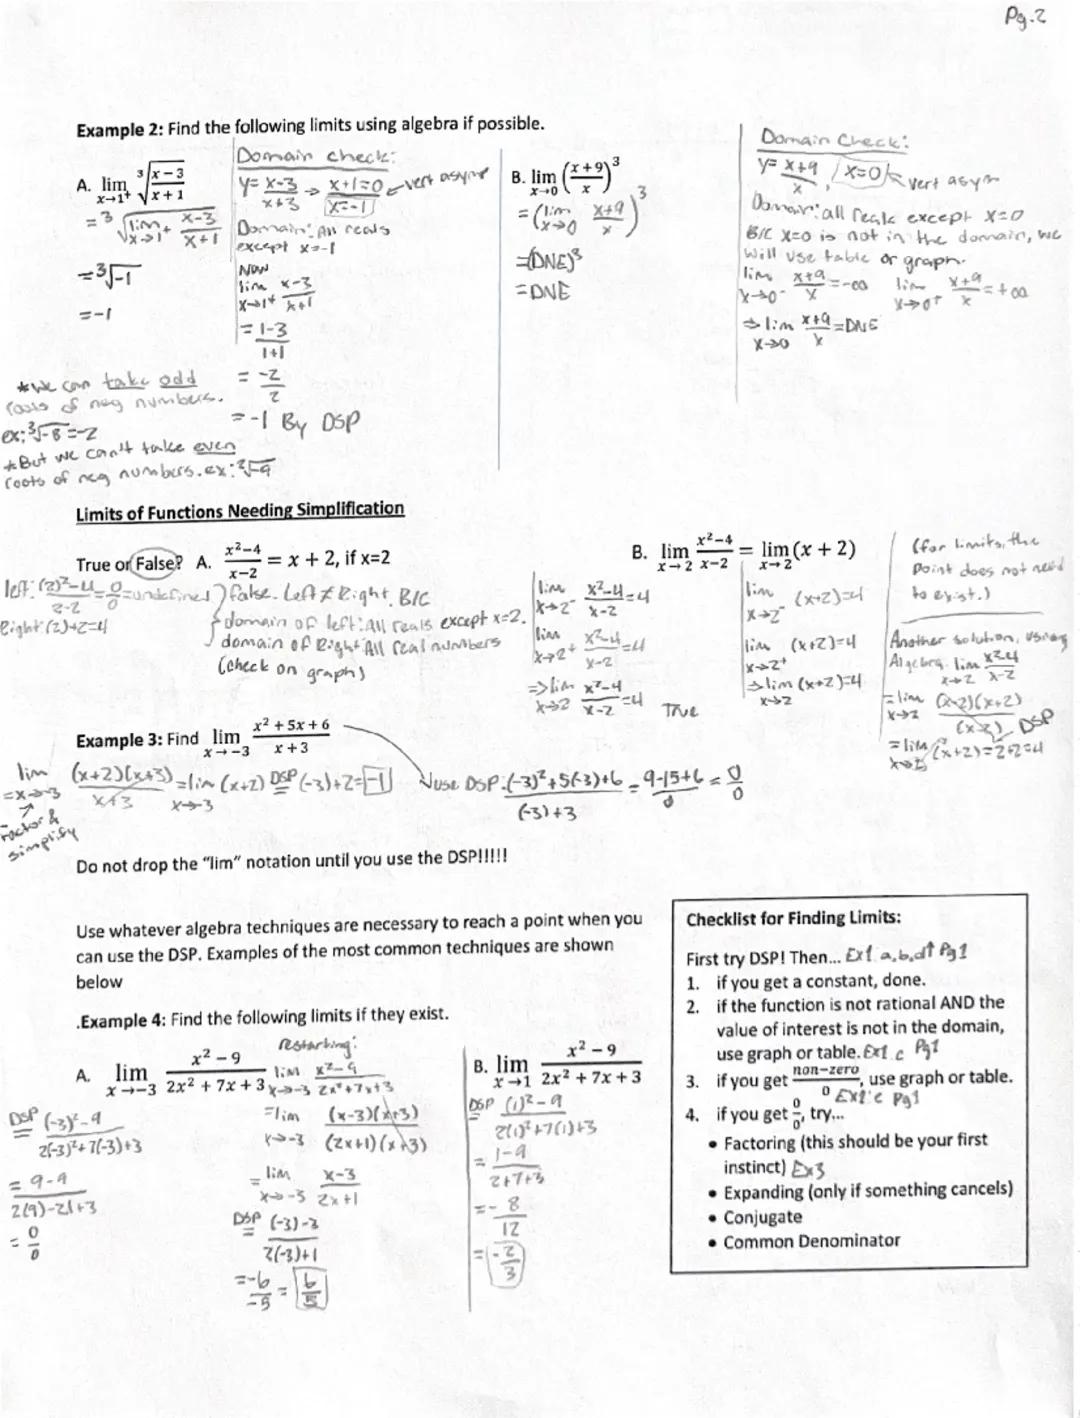 Pg.2
Example 2: Find the following limits using algebra if possible.
A. lim x→1⁺ ∛((x − 3)/(x + 1))
= ∛(lim x→1⁺ (x-3)/(x+1))
= ∛-1
= -1
*We can take odd
roots of neg numbers.
ex: ∛-8 = -2
*But we can't take even
roots of neg numbers. ex: ²√-9
Domain check:
y= (x-3)/(x+3) → x+1=0 ← vert asym
x=-1
Domain: All reals
except x=-1
Now
lim x→1⁺ (x-3)/(x+1)
= (1-3)/(1+1)
= -2/2
= -1 By DSP
B. lim x→0 ((x+9)/x)³
= (lim x→0 (x+9)/x)³
= (DNE)³
= DNE
Domain Check:
y= (x+9)/x, x=0 ← vert asym
Domain: all reals except x=0
B/C x=0 is not in the domain, we
will use table or graph.
lim x→0⁻ (x+9)/x = -∞ lim x→0⁺ (x+9)/x = +∞
⇒ lim x→0 (x+9)/x = DNE
Limits of Functions Needing Simplification
True or False? A. (x²−4)/(x−2) = x + 2, if x=2
left: ((2)²-4)/(2-2) = 0/0 = undefined
Right: (2)+2=4
false. Left ≠ Right B/C
domain of left: All reals except x=2.
domain of Right All real numbers
(check on graph)
B. lim x→2 (x²−4)/(x−2) = lim x→2 (x + 2)
lim x→2⁻ (x²-4)/(x-2) = 4
lim x→2⁺ (x²-4)/(x-2) = 4
⇒ lim x→2 (x²-4)/(x-2) = 4
lim x→2⁻ (x+2)=4
lim x→2⁺ (x+2)=4
⇒ lim x→2 (x+2)=4
True
(for limits, the
point does not need
to exist.)
Another solution, using
Algebra. lim x→2 (x²-4)/(x-2)
= lim x→2 (x-2)(x+2)/(x-2) DSP
= lim x→2 (x+2)=2+2=4
Example 3: Find lim x→−3 (x² + 5x + 6)/(x + 3)
= lim x→-3 (x+2)(x+3)/(x+3) = lim x→-3 (x+2) DSP= (-3)+2 = -1
↗
Factor &
simplify
use DSP: ((-3)²+5(-3)+6)/((-3)+3) = (9-15+6)/0 = 0/0
Do not drop the "lim" notation until you use the DSP!!!!!
Use whatever algebra techniques are necessary to reach a point when you
can use the DSP. Examples of the most common techniques are shown
below
.Example 4: Find the following limits if they exist.
A. lim x→−3 (x² − 9)/(2x² + 7x + 3)
DSP= ((-3)²-9)/(2(-3)²+7(-3)+3)
= (9-9)/(2(9)-21+3)
= 0/0
restarting:
lim x→-3 (x²-9)/(2x²+7x+3)
= lim x→-3 (x-3)(x+3)/(2x+1)(x+3)
= lim x→-3 (x-3)/(2x+1)
DSP= ((-3)-3)/(2(-3)+1)
= -6/-5 = 6/5
B. lim x→1 (x² − 9)/(2x² + 7x + 3)
DSP= ((1)²-9)/(2(1)²+7(1)+3)
= (1-9)/(2+7+3)
= -8/12
= -2/3
Checklist for Finding Limits:
First try DSP! Then... Ex1 a,b,d↑ Pg1
1. if you get a constant, done.
2. if the function is not rational AND the
value of interest is not in the domain,
use graph or table. Ex1.c Pg1
3. if you get non−zero/0, use graph or table.
Ex1:e Pg1
4. if you get 0/0, try...
• Factoring (this should be your first
instinct) Ex3
• Expanding (only if something cancels)
• Conjugate
• Common Denominator